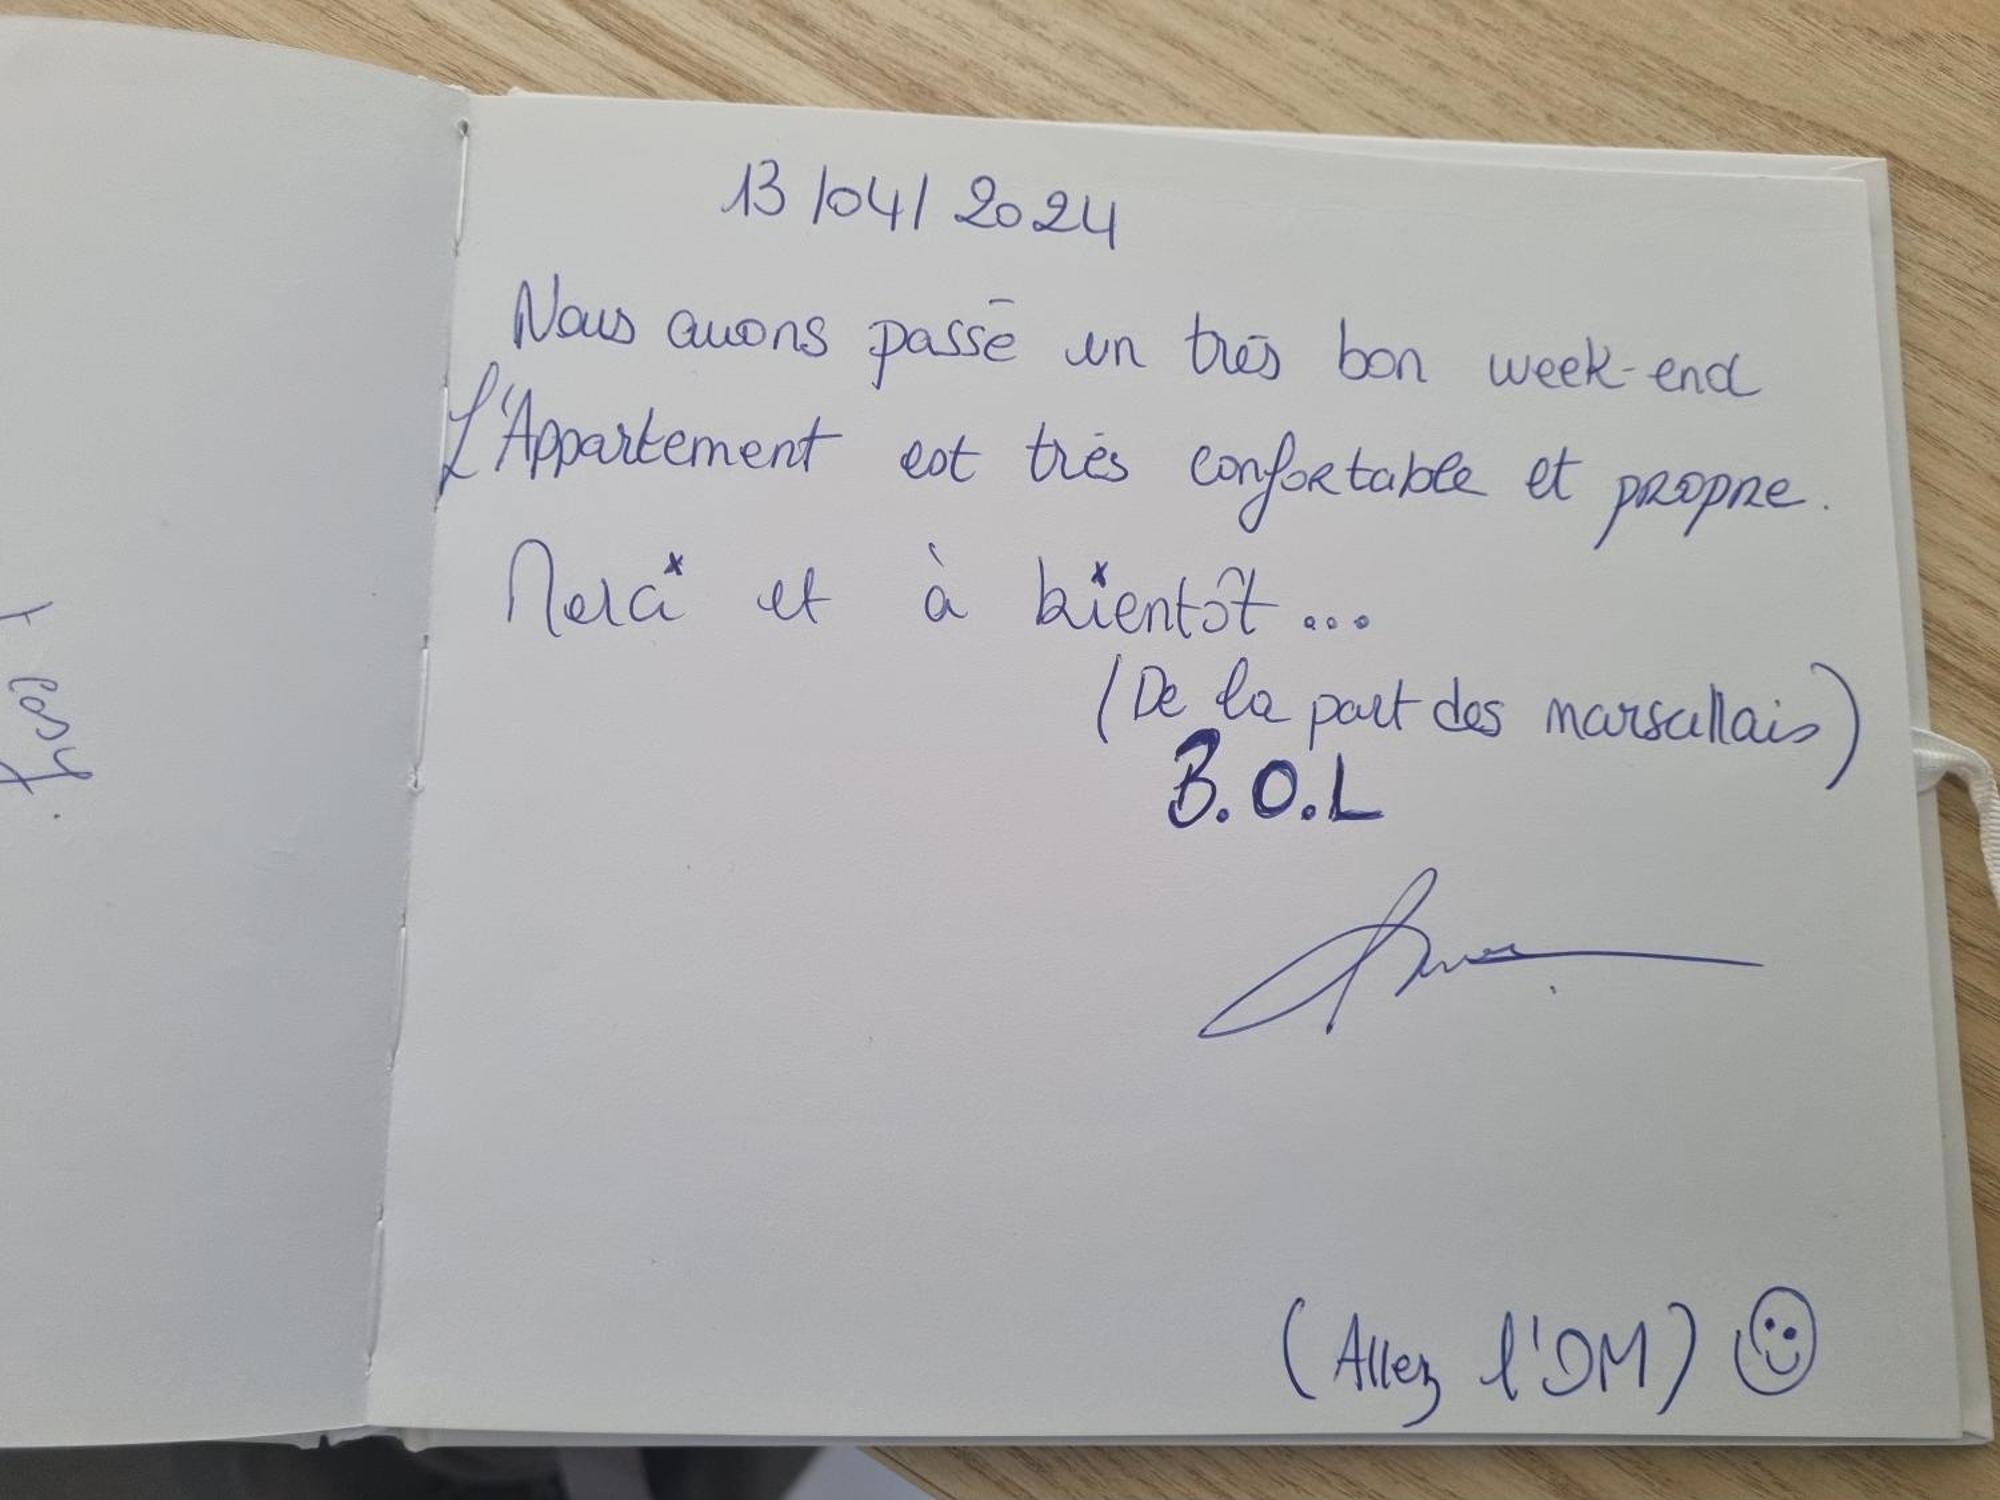 13/04/2024
Nous avons passé un très bon week-end
L'Appartement est très confortable et propre.
Merci et à bientôt...
(De la part des marseillais)
B.O.L
(Allez l'OM)